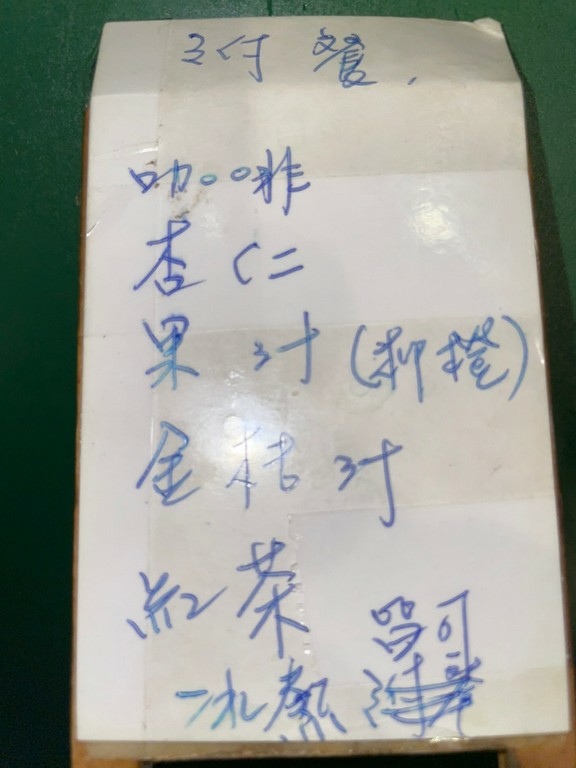 附餐
咖啡
杏仁
果汁(柳橙)
金桔汁
紅茶
冰熱皆可